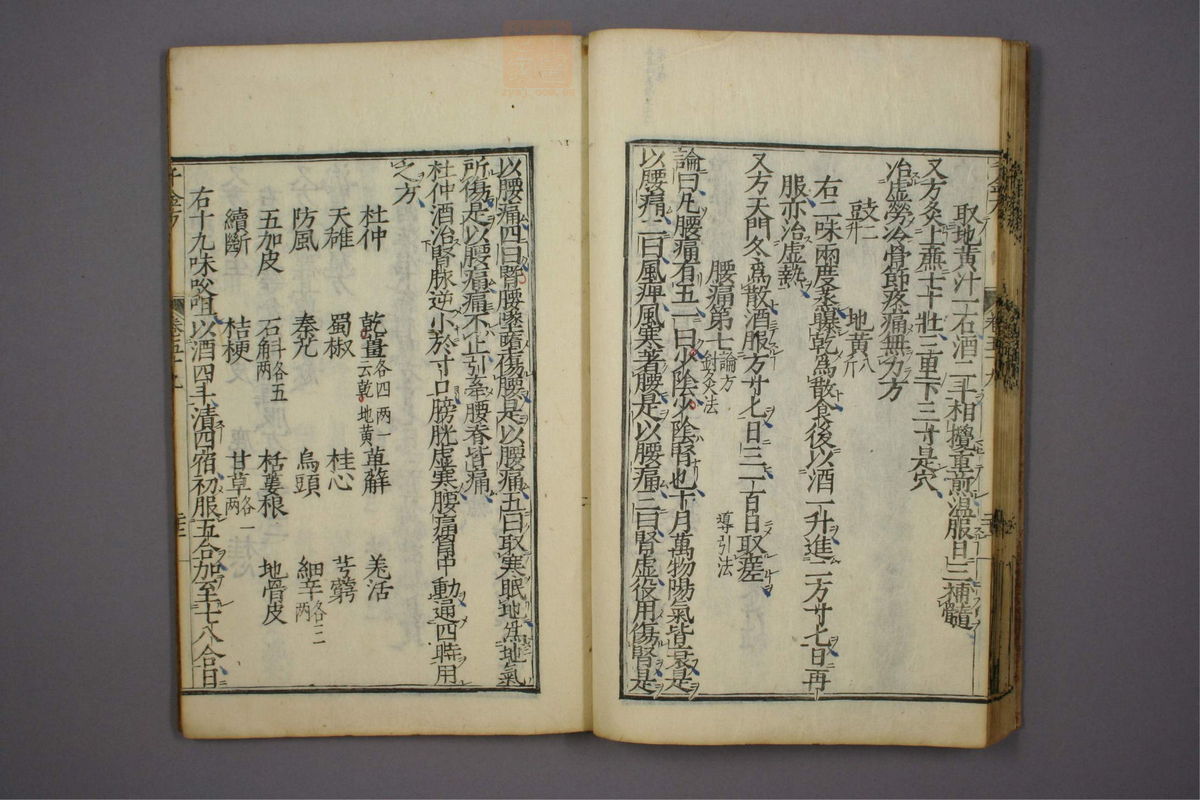 取地黃汁一石酒二斗相攪重煎溫服日三補髓
又方灸上燕七十壯三里下三寸是穴
冶虛勞冷骨節疼痛無力方
豉二升　地黃八斤
右二味兩度蒸曝乾爲散食後以酒一升進二方寸匕日再
服亦治虛熱
又方天門冬爲散酒服方寸匕日三一百日取瘥
腰痛第七論方 針灸法 導引法
論曰凡腰痛有五一曰少陰少陰腎也十月萬物陽氣皆衰是
以腰痛二曰風痹風寒著腰是以腰痛三曰腎虛役用傷腎是
以腰痛四曰腎腰墜墮傷腰是以腰痛五曰取寒眠地爲地氣
所傷是以腰痛痛不止引牽腰脊皆痛
杜仲酒治腎脉逆小於寸口膀胱虛寒腰痛胷中動通四時用
之方
杜仲　乾薑各四兩一云乾地黃　萆薢　羌活
天雄　蜀椒　桂心　芎藭
防風　秦艽　烏頭　細辛各三兩
五加皮　石斛各五兩　栝蔞根　地骨皮
續斷　桔梗　甘草各一兩
右十九味㕮咀以酒四斗漬四宿初服五合加至七八合日